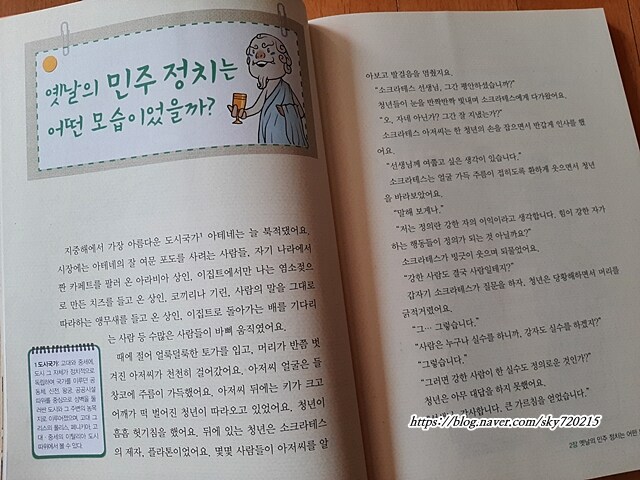 옛날의 민주 정치는
어떤 모습이었을까?
지중해에서 가장 아름다운 도시국가¹ 아테네는 늘 북적댔어요.
시장에는 아테네의 잘 여문 포도를 사려는 사람들, 자기 나라에서
짠 카페트를 팔러 온 아라비아 상인, 이집트에서만 나는 염소젖으
로 만든 치즈를 들고 온 상인, 코끼리나 기린, 사람의 말을 그대로
따라하는 앵무새를 들고 온 상인, 이집트로 돌아가는 배를 기다리
는 사람 등 수많은 사람들이 바삐 움직였어요.
때에 절어 얼룩덜룩한 토가를 입고, 머리가 반쯤 벗
겨진 아저씨가 천천히 걸어갔어요. 아저씨 얼굴은 들
창코에 주름이 가득했어요. 아저씨 뒤에는 키가 크고
어깨가 떡 벌어진 청년이 따라오고 있었어요. 청년이
흠흠 헛기침을 했어요. 뒤에 있는 청년은 소크라테스
의 제자, 플라톤이었어요. 몇몇 사람들이 아저씨를 알
1 도시국가: 고대와 중세에,
도시 그 자체가 정치적으로
독립하여 국가를 이루던 공
동체. 신전, 왕궁, 공공시설
따위를 중심으로 성벽을 둘
러싼 도시와 그 주변의 농목
지로 이루어졌으며, 고대 그
리스의 폴리스, 페니키아, 고
대·중세의 이탈리아 도시
따위에서 볼 수 있다.
아보고 발걸음을 멈췄지요.
“소크라테스 선생님, 그간 평안하셨습니까?”
청년들이 눈을 반짝반짝 빛내며 소크라테스에게 다가왔어요.
“오, 자네 아닌가? 그간 잘 지냈는가?”
소크라테스 아저씨는 한 청년의 손을 잡으면서 반갑게 인사를 했
어요.
“선생님께 여쭙고 싶은 생각이 있습니다.”
소크라테스는 얼굴 가득 주름이 접히도록 환하게 웃으면서 청년
을 바라보았어요.
“말해 보게나.”
“저는 정의란 강한 자의 이익이라고 생각합니다. 힘이 강한 자가
하는 행동들이 정의가 되는 것 아닐까요?”
소크라테스가 빙긋이 웃으며 되물었어요.
“강한 사람도 결국 사람일테지?”
갑자기 소크라테스가 질문을 하자, 청년은 당황해하면서 머리를
긁적거렸어요.
“그… 그렇습니다.”
“사람은 누구나 실수를 하니까, 강자도 실수를 하겠지?”
“그렇습니다.”
“그러면 강한 사람이 한 실수도 정의로운 것인가?”
청년은 아무 대답을 하지 못했어요.
감사합니다. 큰 가르침을 얻었습니다.”
https://blog.naver.com/sky720215
2장 옛날의 민주 정치는 어떤